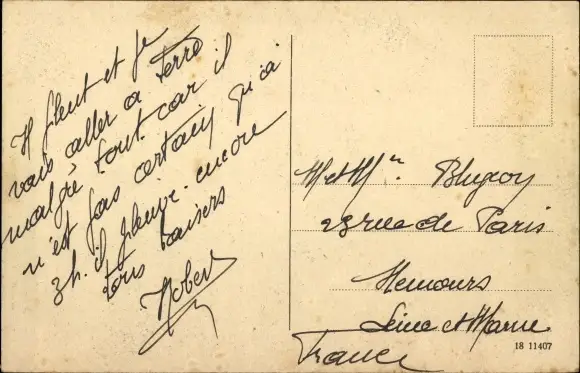 Il pleut et je
vais aller à terre
malgré tout car il
n'est pas certain qu'à
3h. il pleuve encore
tous baisers
Robert
M et Mme
23 rue de Paris
Nemours
Seine et Marne
France
18 11407